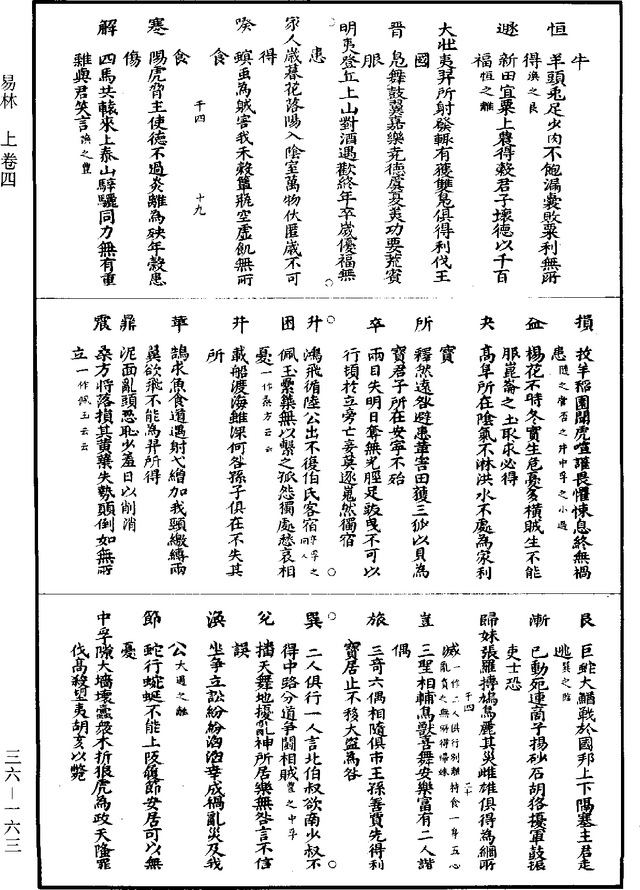 牛
恒 羊頭兔足少肉不飽漏囊敗粟利無所
得渙之艮
遯 新田宜粟上農得穀君子壞德以千百
福恒之離
大壯夷羿所射發輒有獲雙鳧俱得利伐王
國
晉 鳧舞鼓翼嘉樂堯德虞夏美功要荒賓
服
明夷登丘上山對酒遇歡終年卒歲優福無
患
家人歲暮花落陽入陰室萬物伏匿歲不可
得
睽 螟虫為賊害我禾穀簞瓶空虛飢無所
食
千四 十九
食
蹇 陽虎脅主使德不過炎離為殃年穀患
傷
解 四馬共轅來上泰山騂驪同力無有重
難與君笑言渙之豐
損 投羊稻園闞虎喧讙畏懼悚息終無禍
患隨之 井中孚之小過
益 楊花不時冬實生危憂多橫賊生不能
服崑崙之土取求必得
夬 高阜所在陰氣不淋洪水不處為家利
寶
所 釋然遠咎避患 害田獲三狐以貝為
寶君子所在安寧不殆
卒 兩目失明日奪無光脛足跛曳不可以
行頓於丘旁亡妾莫逐嵬然獨宿
升 鴻飛循陸公出不復伯氏客宿中孚之同人
困 佩玉蘂蘂無以繫之孤怨獨處愁哀相
憂一作桑方云云
井 載船渡海雖深何咎孫子俱在不失其
所
革 鵠求魚食道遇射弋繒加我頸繳縛兩
翼欲飛不能為羿所得
鼎 泥面亂頭忍恥少羞日以削消
震 桑方將落損其黃葉失勢顛倒如無所
立一作佩玉云云
艮 巨蛇大鰌戰於國邦上下隔塞主君走
逃巽之臨
漸 已動死連商子揚砂石胡狢擾軍鼓振
吏士恐
歸妹張羅搏鳩鳥麗其災雌雄俱得為綱所
千四 二十
滅一作二人俱行別離特食一身五心亂負之無所得歸妹
豈 三聖相輔鳥獸喜舞安樂富有二人諧
偶
旅 三奇六偶相隨俱市王孫善賈先得利
寶居止不移大盜為咎
巽 二人俱行一人言北伯叔欲南少叔不
得中路分道爭鬬相賊豐之中孚
兌 擋天舞地擾亂神所居樂無咎言不信
誤
渙 坐爭立訟紛紛洶洶卒成禍亂災及我
公大過之離
節 蛇行蜿蜒不能上阪履節安居可以無
憂
中孚隙大墻壞蠹眾木折狼虎為政天隆罪
伐高殺望夷胡亥以斃
易林 上卷四
三六—一六三